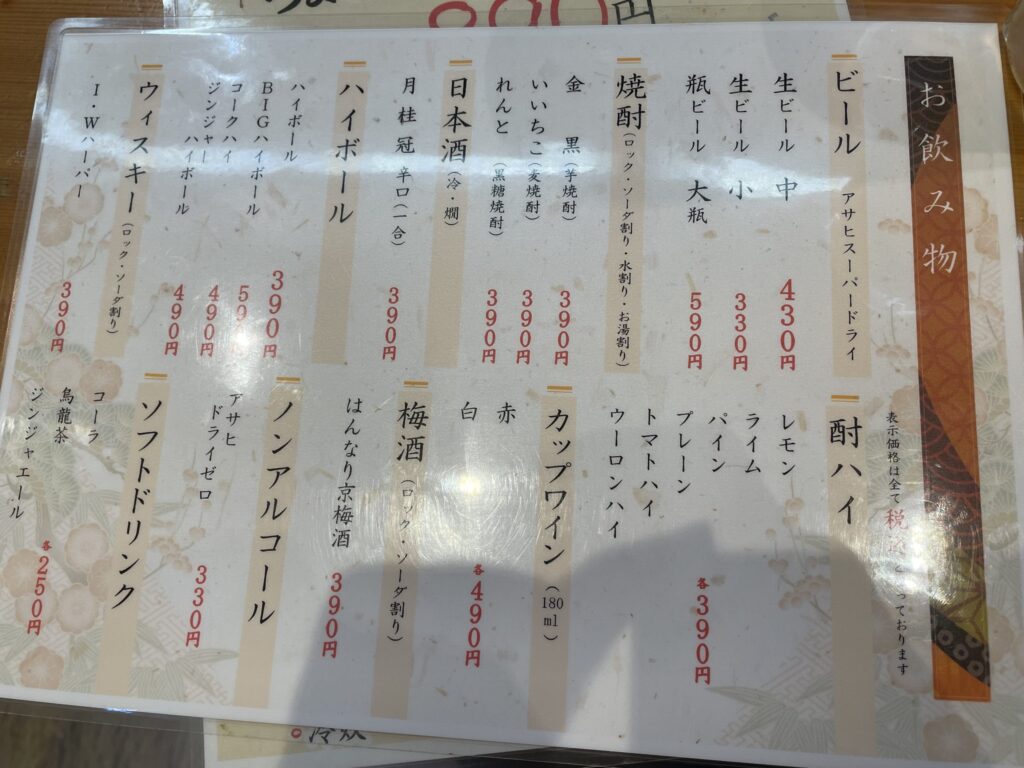 890円
お飲み物
表示価格は全て税込となっております
ビール アサヒスーパードライ
生ビール 中 430円
生ビール 小 330円
瓶ビール 大瓶 590円
焼酎(ロック・ソーダ割り・水割り・お湯割り)
金 黒(芋焼酎) 390円
いいちこ(麦焼酎) 390円
れんと(黒糖焼酎) 390円
日本酒(冷・燗)
月桂冠 辛口(一合) 390円
ハイボール
ハイボール 390円
BIGハイボール 590円
コークハイ 490円
ジンジャーハイボール 490円
ウィスキー(ロック・ソーダ割り)
I・Wハーパー 390円
酎ハイ
レモン
ライム
パイン
プレーン
トマトハイ
ウーロンハイ
各390円
カップワイン(180ml)
赤
白
各490円
梅酒(ロック・ソーダ割り)
はんなり京梅酒 390円
ノンアルコール
アサヒ
ドライゼロ 330円
ソフトドリンク
コーラ
烏龍茶
ジンジャエール
各250円